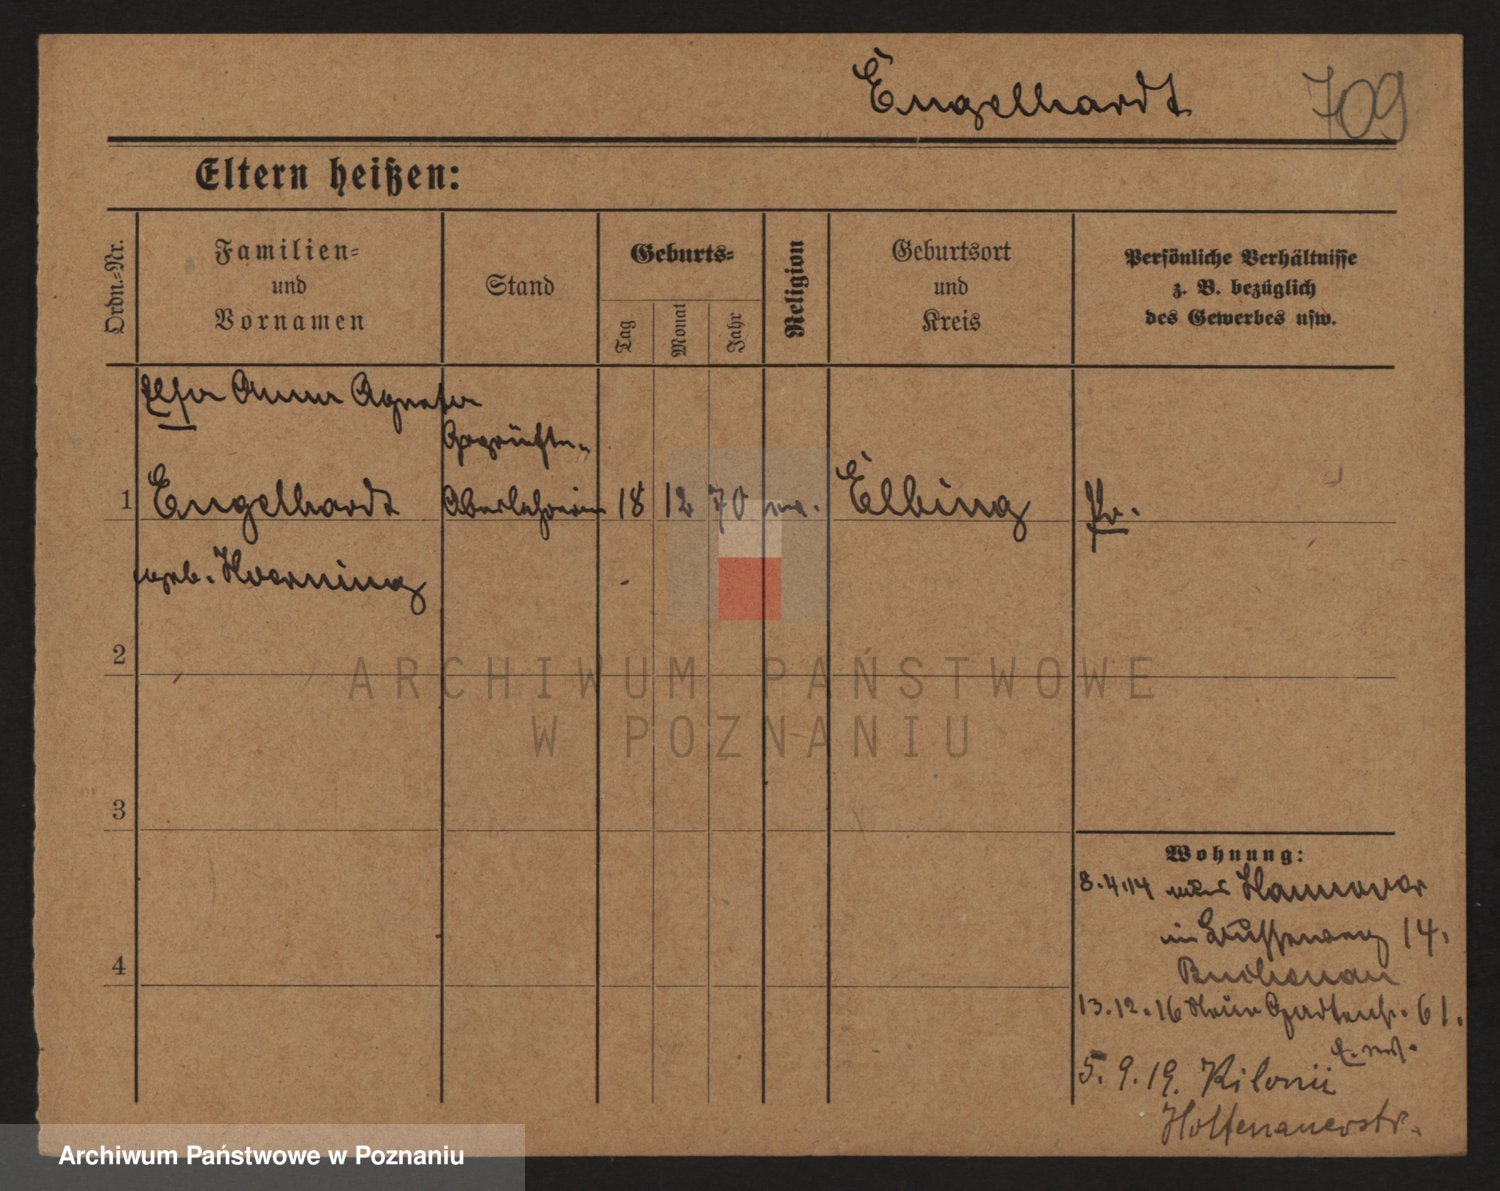 Engelhardt 709
Eltern heißen:
Ordn.-Nr.
Familien-
und
Vornamen
Stand
Geburts-
Tag
Monat
Jahr
Religion
Geburtsort
und
Kreis
Persönliche Verhältnisse
z. B. bezüglich
des Gewerbes usw.
Anna Agnes
Geprüfte
1 Engelhardt Oberlehrerin 18 12 70 ev. Elbing Pr.
geb. Hoerning
2
3
4
Wohnung:
8.4.14 nach Hannover
14.
13.12.16 Neue Gartenstr. 61.
5.9.19. Kilonii
Holtenauerstr.
ARCHIWUM PAŃSTWOWE
W POZNANIU
Archiwum Państwowe w Poznaniu